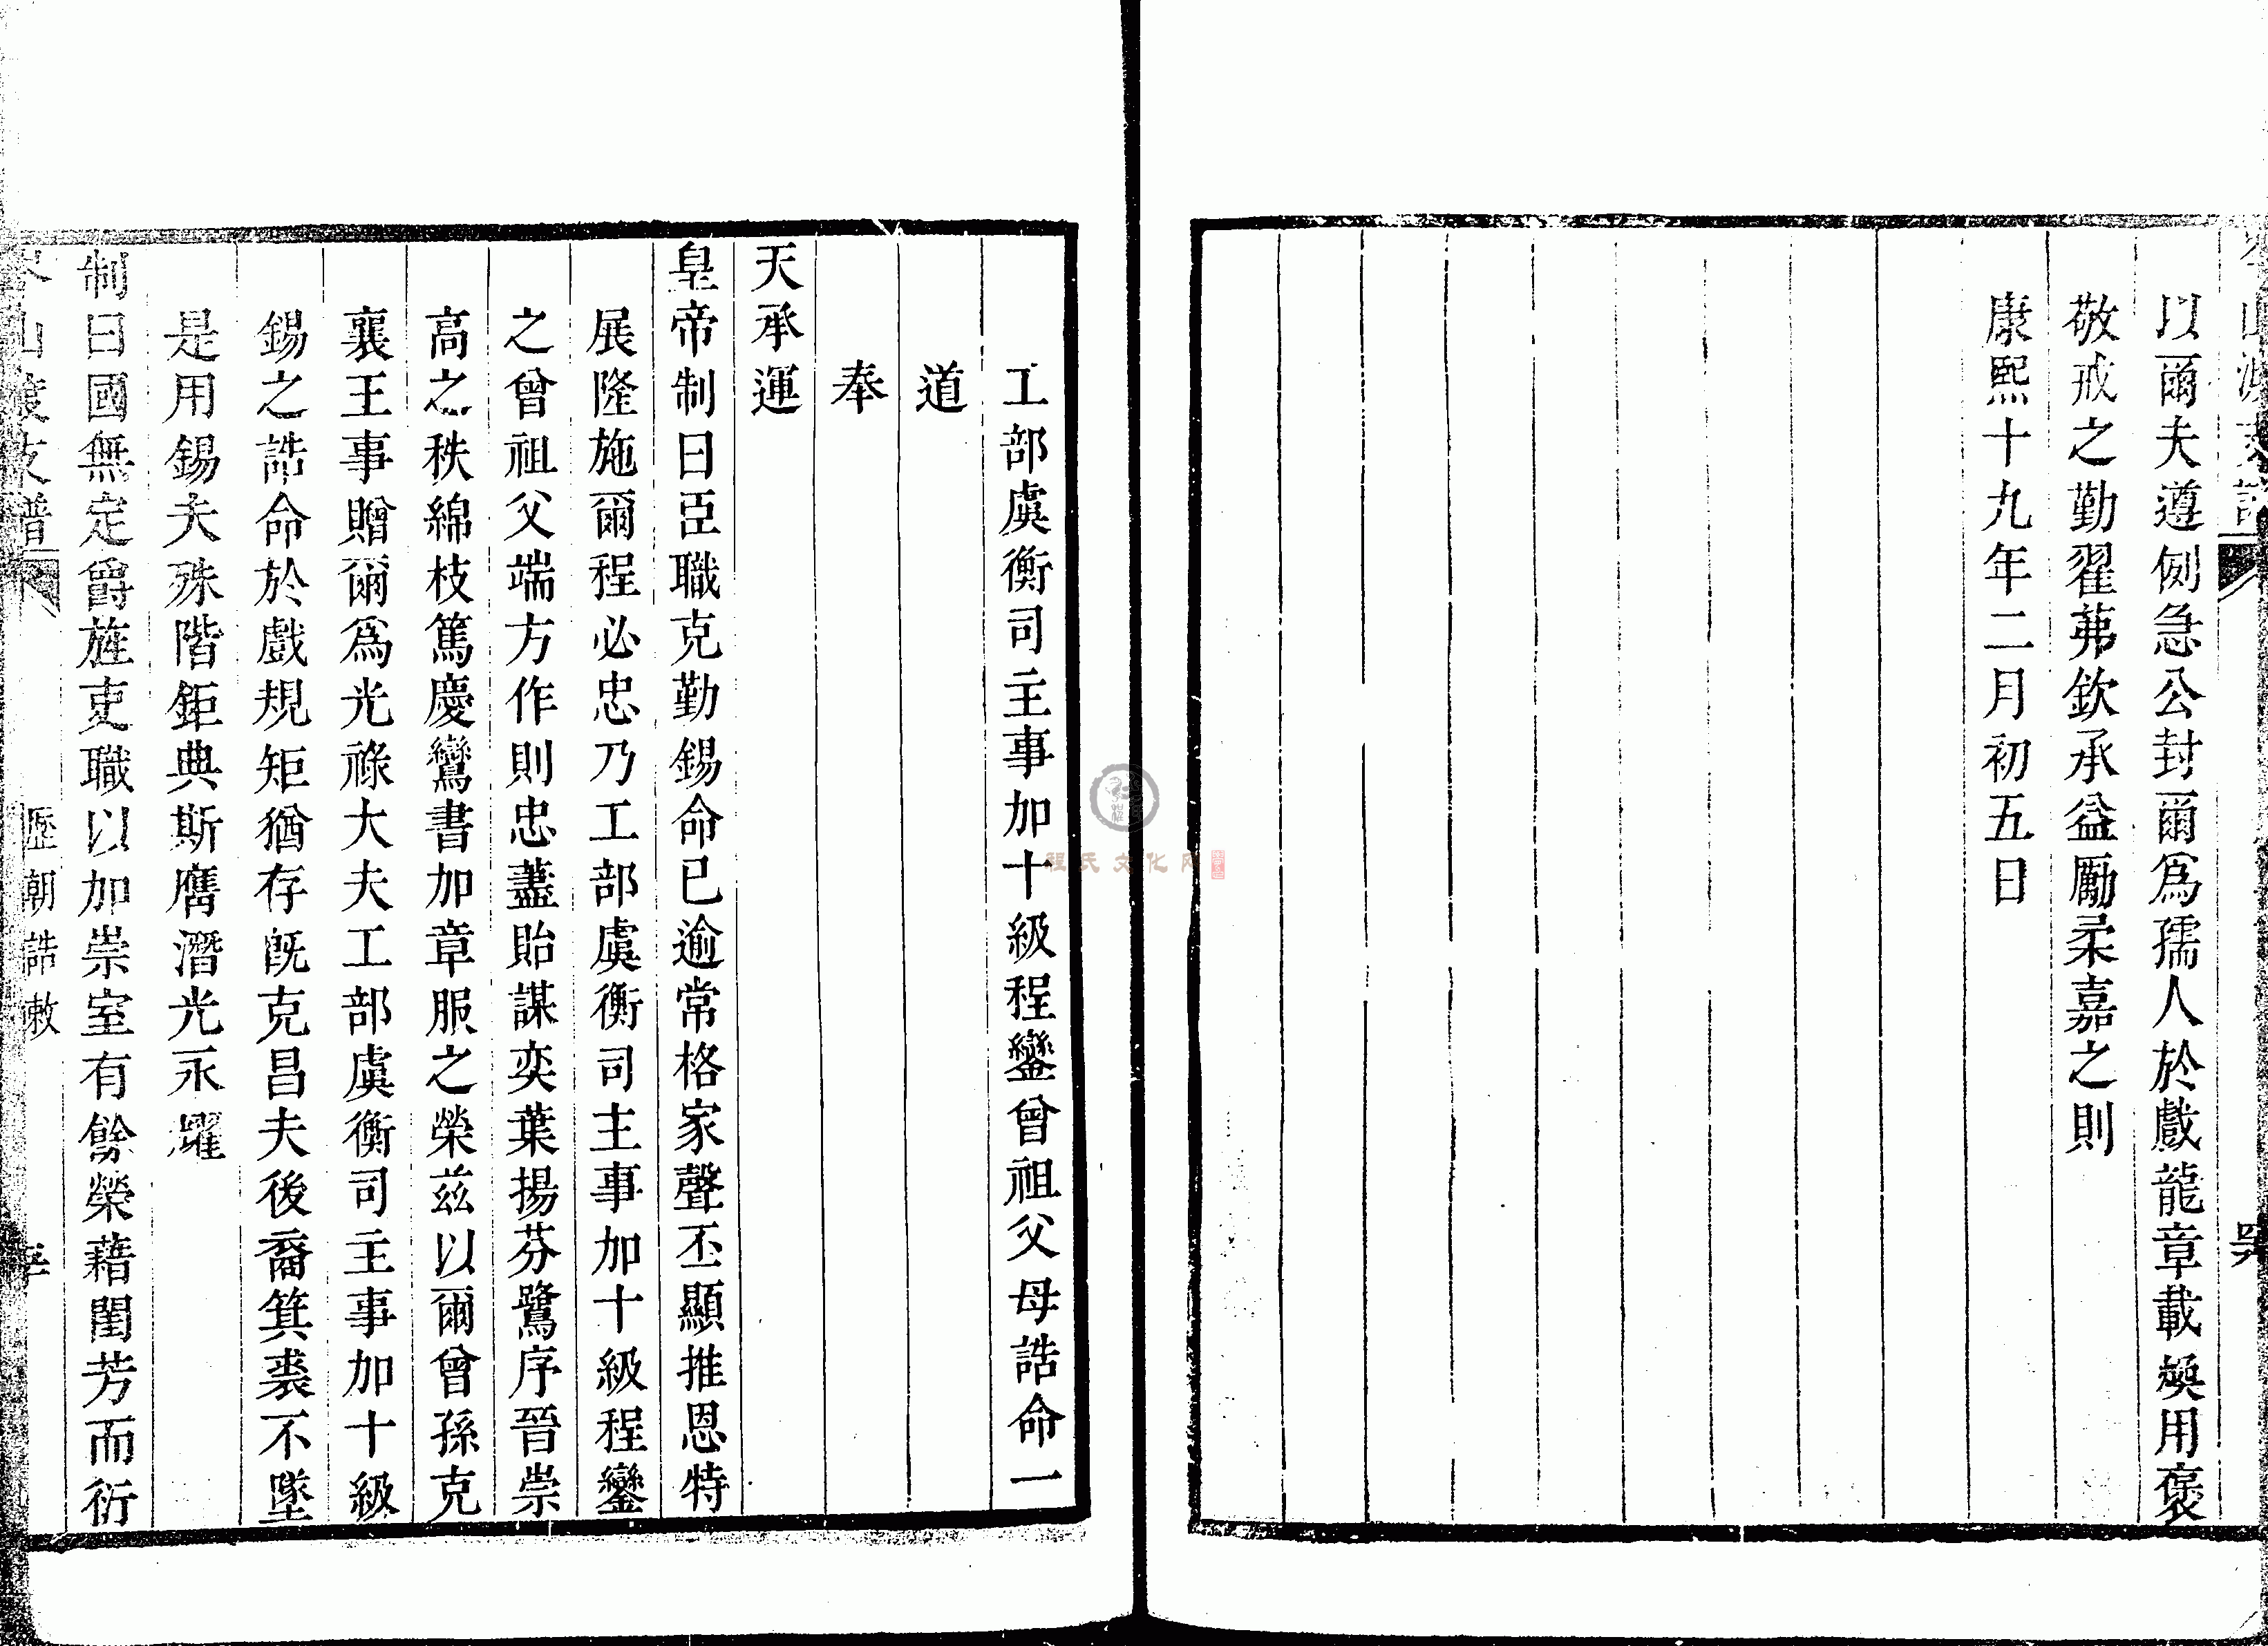 以爾夫遵例急公封爾爲孺人於戲龍章載煥用褒
敬戒之勤翟茀欽承益勵柔嘉之則
康熙十九年二月初五日
工部虞衡司主事加十級程鑾曾祖父母誥命一
道
奉
天承運
皇帝制曰臣職克勤錫命已逾常格家聲丕顯推恩特
展隆施爾程必忠乃工部虞衡司主事加十級程鑾
之曾祖父端方作則忠藎貽謀奕葉揚芬鷺序晉崇
高之秩綿枝篤慶鸞書加章服之榮兹以爾曾孫克
襄王事贈爾爲光祿大夫工部虞衡司主事加十級
錫之誥命於戲規矩猶存旣克昌夫後裔箕裘不墜
是用錫夫殊階鉅典斯膺潛光永耀
制曰國無定爵旌吏職以加崇室有餘榮藉閨芳而衍
歷朝誥敕
程氏文化网